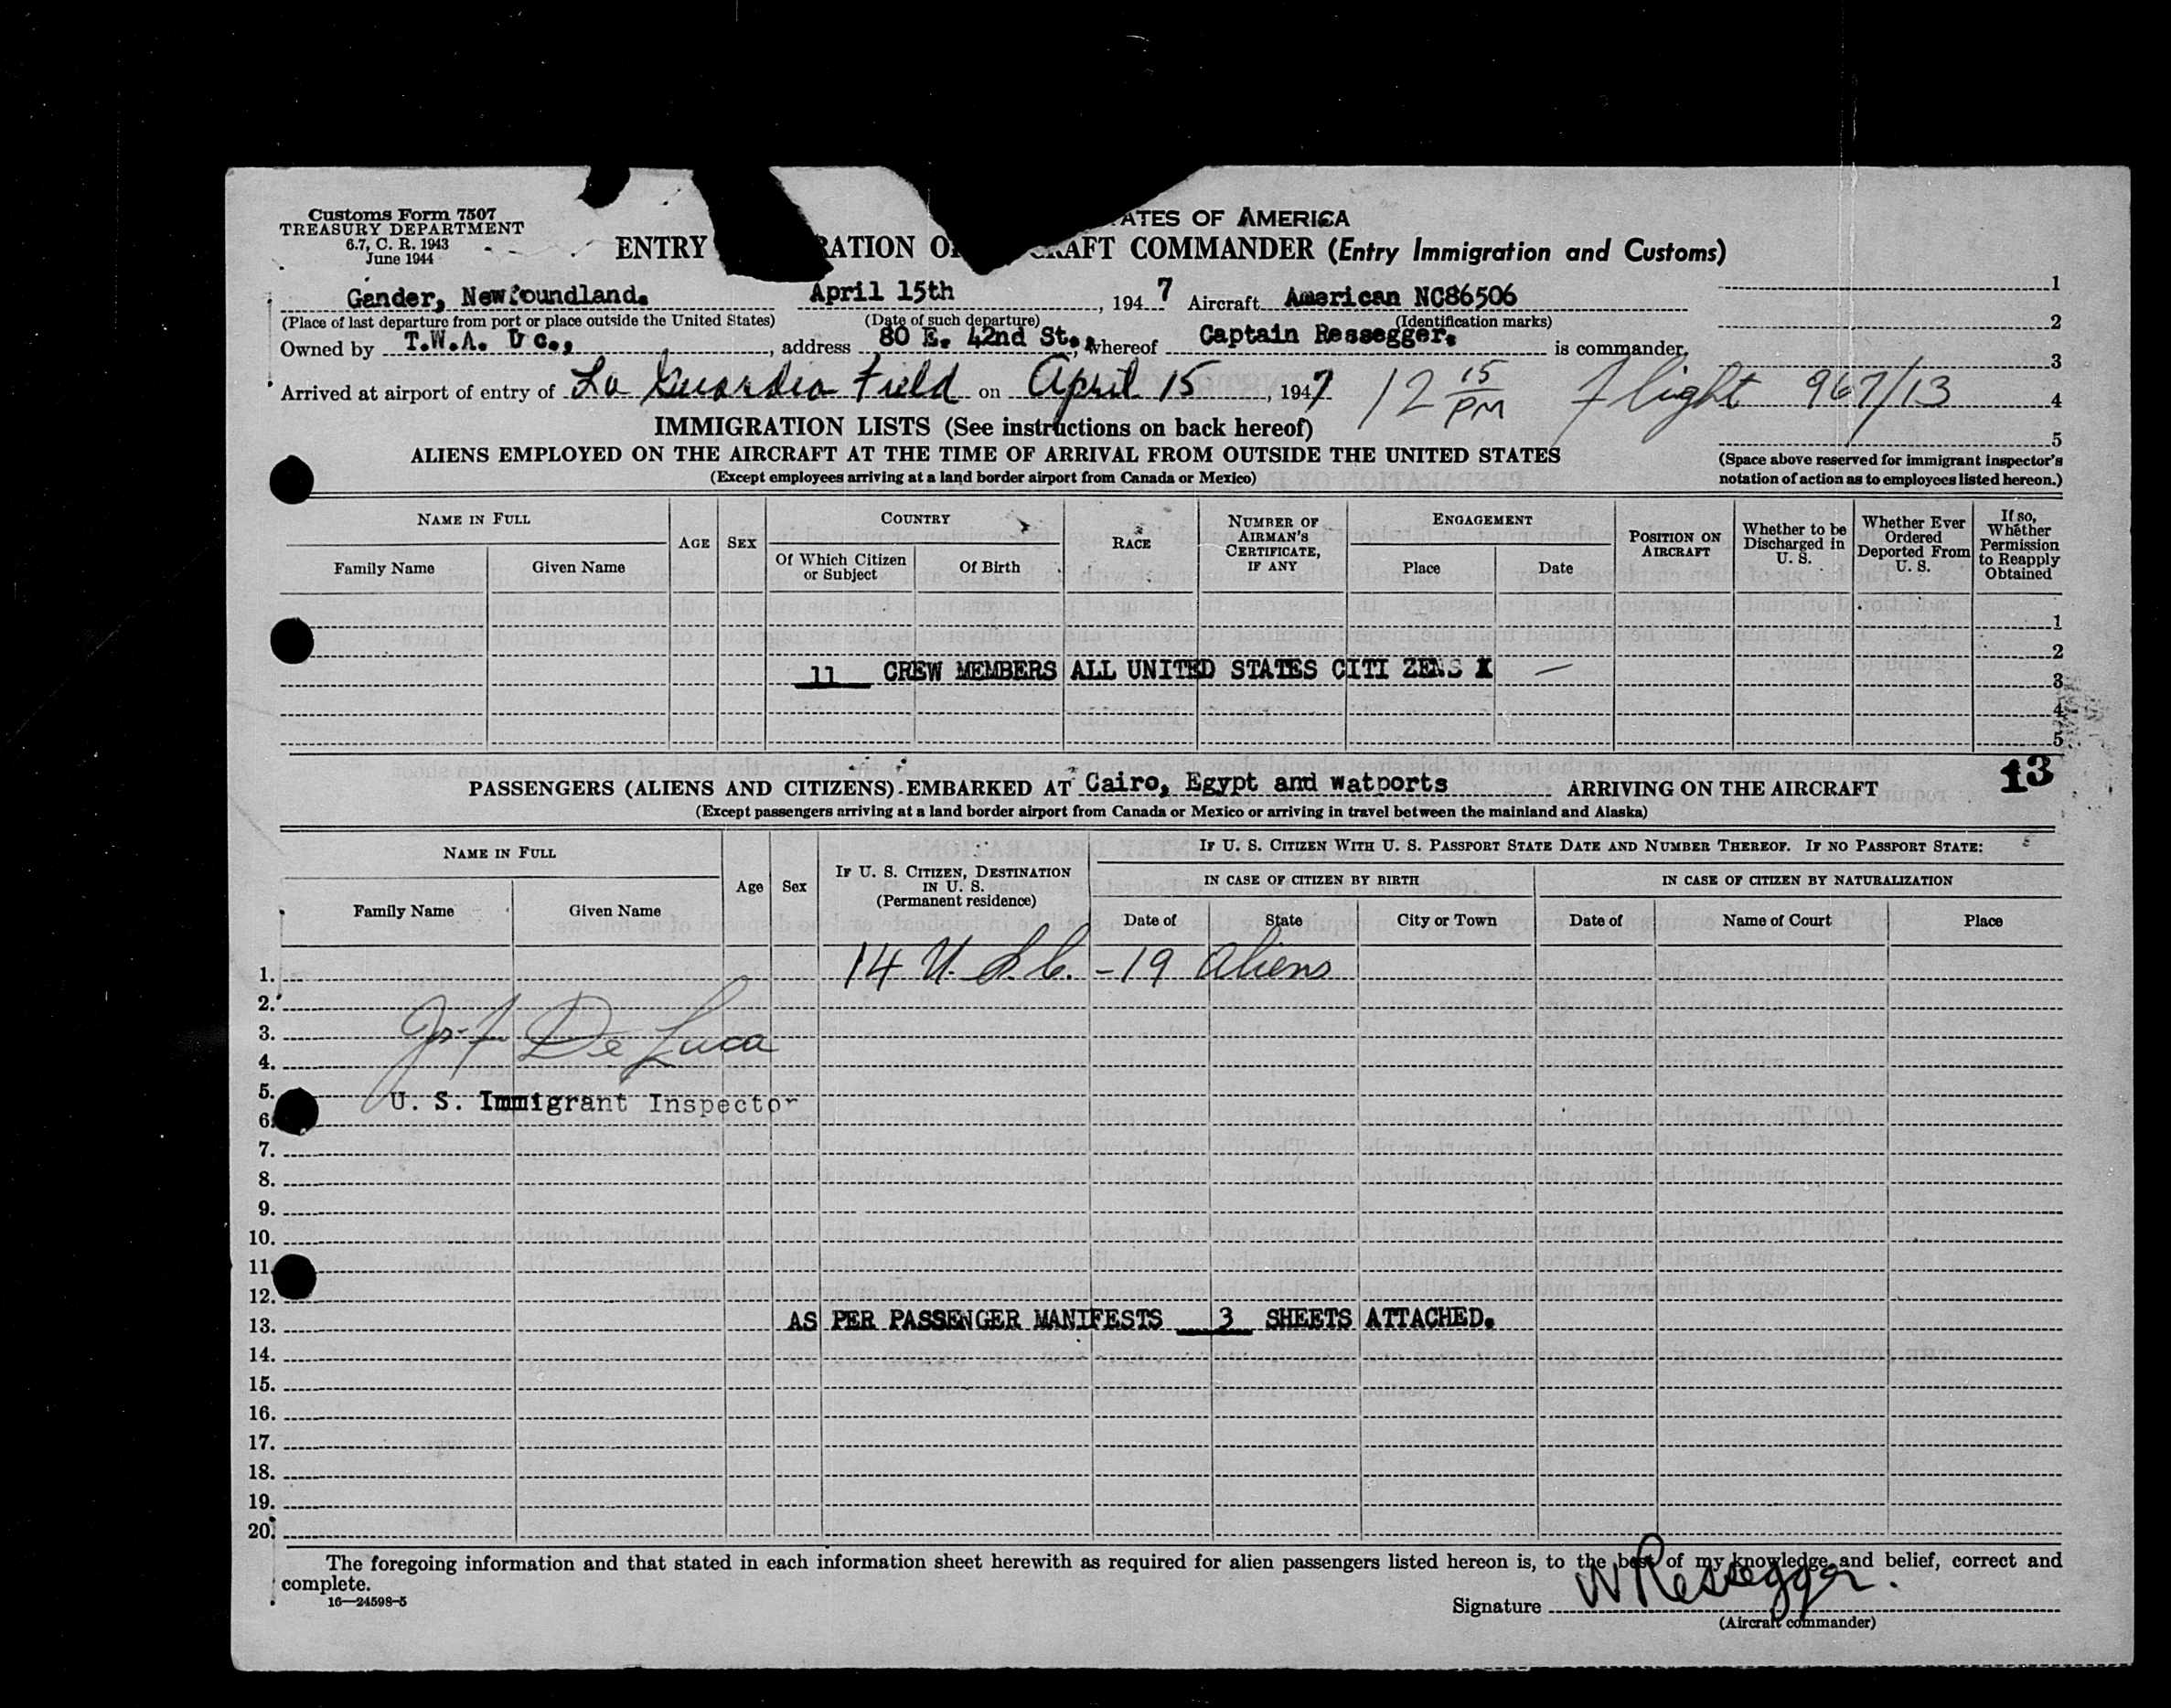 Customs Form 7507
TREASURY DEPARTMENT
6.7, C. R. 1943
June 1944
ATES OF AMERICA
ENTRY RATION O RAFT COMMANDER (Entry Immigration and Customs)
Gander, Newfoundland. April 15th, 1947 Aircraft American NC86506 1
(Place of last departure from port or place outside the United States) (Date of such departure) (Identification marks) 2
Owned by T.W.A., address 80 E. 42nd St., whereof Captain Ressegger. is commander. 3
Arrived at airport of entry of La Guardia Field on April 15, 1947 12 15 PM Flight 967/13 4
5
IMMIGRATION LISTS (See instructions on back hereof)
ALIENS EMPLOYED ON THE AIRCRAFT AT THE TIME OF ARRIVAL FROM OUTSIDE THE UNITED STATES
(Except employees arriving at a land border airport from Canada or Mexico)
(Space above reserved for immigrant inspector's
notation of action as to employees listed hereon.)
NAME IN FULL
Family Name
Given Name
AGE
SEX
COUNTRY
Of Which Citizen
or Subject
Of Birth
RACE
NUMBER OF
AIRMAN'S
CERTIFICATE,
IF ANY
ENGAGEMENT
Place
Date
POSITION ON
AIRCRAFT
Whether to be
Discharged in
U. S.
Whether Ever
Ordered
Deported From
U. S.
If so,
Whether
Permission
to Reapply
Obtained
1
2
11 CREW MEMBERS ALL UNITED STATES CITI ZENS X — 3
4
5
13
PASSENGERS (ALIENS AND CITIZENS) EMBARKED AT Cairo, Egypt and watports ARRIVING ON THE AIRCRAFT
(Except passengers arriving at a land border airport from Canada or Mexico or arriving in travel between the mainland and Alaska)
NAME IN FULL
Family Name
Given Name
Age
Sex
IF U. S. CITIZEN, DESTINATION
IN U. S.
(Permanent residence)
IF U. S. CITIZEN WITH U. S. PASSPORT STATE DATE AND NUMBER THEREOF. IF NO PASSPORT STATE:
IN CASE OF CITIZEN BY BIRTH
IN CASE OF CITIZEN BY NATURALIZATION
Date of
State
City or Town
Date of
Name of Court
Place
1. 14 U.S.C. - 19 Aliens
2.
3. De Luca
4.
5. U. S. Immigrant Inspector
6.
7.
8.
9.
10.
11.
12.
13. AS PER PASSENGER MANIFESTS 3 SHEETS ATTACHED.
14.
15.
16.
17.
18.
19.
20.
The foregoing information and that stated in each information sheet herewith as required for alien passengers listed hereon is, to the best of my knowledge and belief, correct and
complete.
16—24598-5
Signature W Ressegger.
(Aircraft commander)